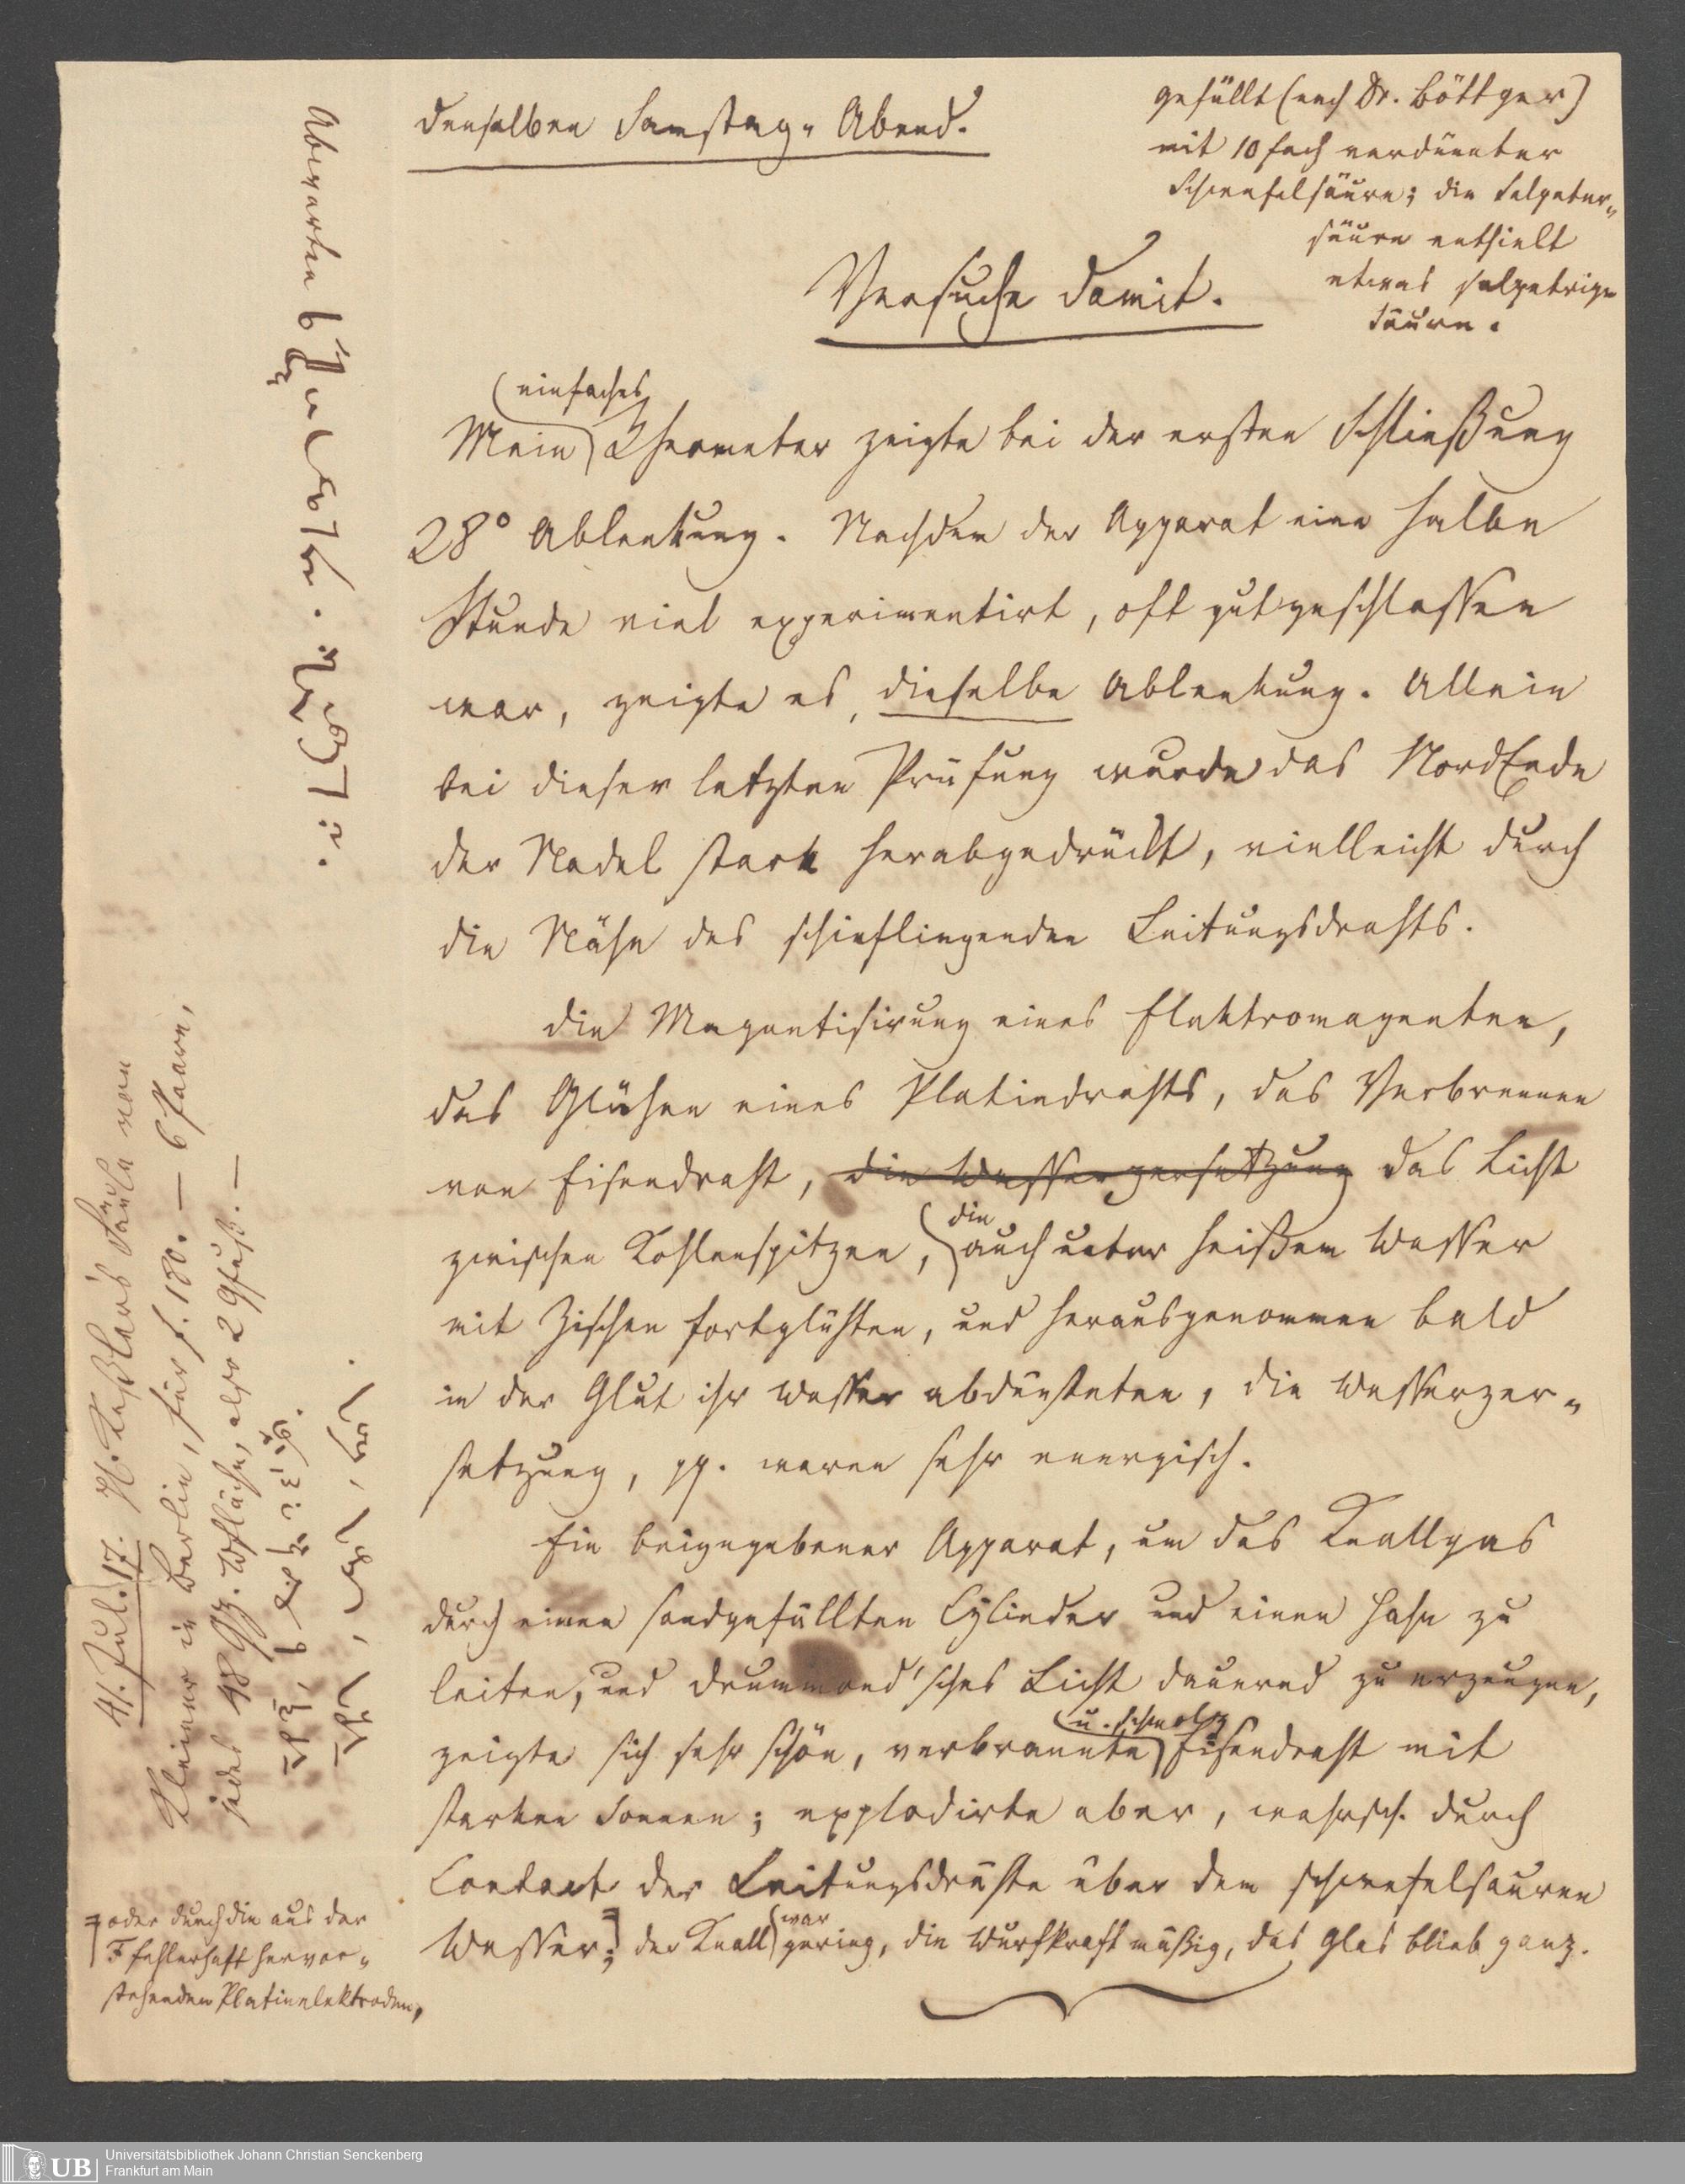 denselben Samstag-Abend.
gefüllt (nach Dr. Böttger)
mit 10fach verdünnter
Schwefelsäure; die Salpeter-
säure enthielt
etwas salpetrige
Säure.
Versuche damit.
einfaches
Mein Rheometer zeigte bei der ersten Schließung
28° Ablenkung. Nachdem der Apparat eine halbe
Stunde viel experimentirt, oft gut geschlossen
war, zeigte es dieselbe Ablenkung. Allein
bei dieser letzten Prüfung wurde das NordEnde
der Nadel stark herabgedrückt, vielleicht durch
die Nähe des schiefliegenden Leitungsdrahts.
Die Magnetisirung eines Elektromagneten,
das Glühen eines Platindrahts, das Verbrennen
von Eisendraht, die Wasserzersetzung das Licht
zwischen Kohlenspitzen, die auch unter heißem Wasser
mit Zischen fortglühten, und herausgenommen bald
in der Glut ihr Wasser abdünsteten, die Wasserzer-
setzung, pp. waren sehr energisch.
Ein beigegebener Apparat, um das Knallgas
durch einen sandgefüllten Cylinder und einen Hahn zu
leiten, und Drummond'sches Licht dauernd zu erzeugen,
zeigte sich sehr schön, verbrannte u. schmolz Eisendraht mit
starken Sonnen; explodirte aber, wahrsch. durch
Contact der Leitungsdrähte über dem schwefelsauren
Wasser; der Knall war gering, die Wurfkraft mäßig, das Glas blieb ganz.
oder durch die aus der
fehlerhaft hervor-
stehenden Platinelektroden,
41. Jul. 17. H. Keßler's Säule von
Kleiner in Berlin, für f. 180. — 6 Paare,
jedes 48 Qz. Wfläche, also 2 Qfuß. —
Abwarten